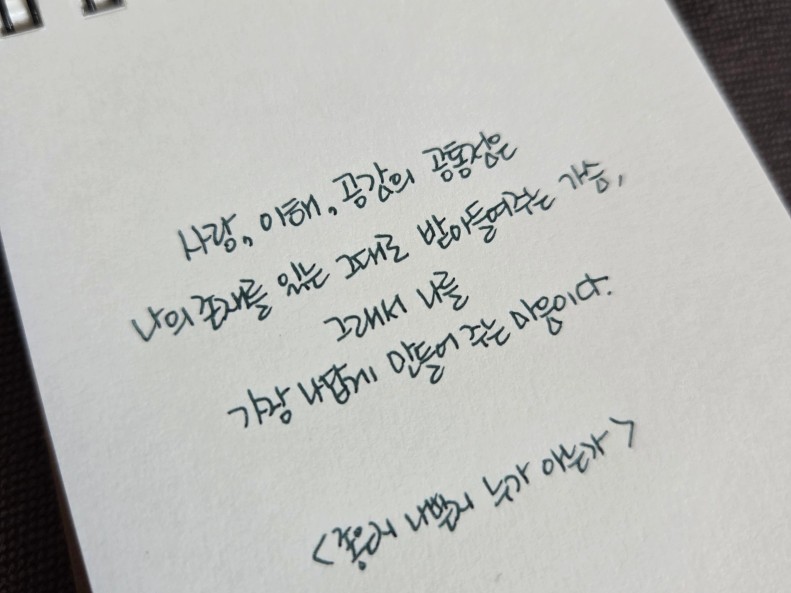 사랑, 이해, 공감의 공통점은
나의 존재를 있는 그대로 받아들여주는 가슴,
그래서 나를
가장 나답게 만들어 주는 마음이다.
<좋은지 나쁜지 누가 아는가>